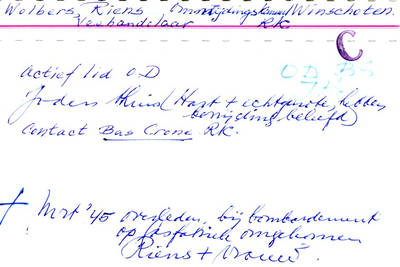 Wolbers, Riens Winschoten.
Veehandelaar RK
C
actief lid O.D O.D.
Joden (Hart + echtgenote, hebben
bevrijding beleefd)
Contact Bas Crone RK.
+ Mrt '45 overleden, bij bombardement
op gasfabriek omgekomen
Riens + vrouw.